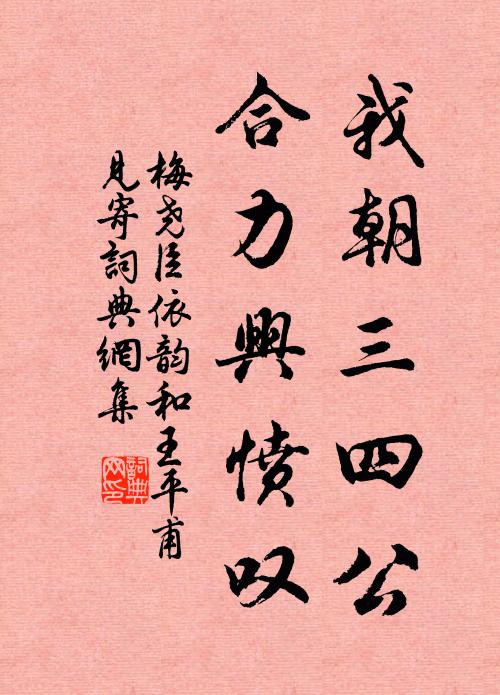 我朝三四公
合力興憤叹
梅尧臣依韵和王平甫
見寄詞典網集
詞典网印